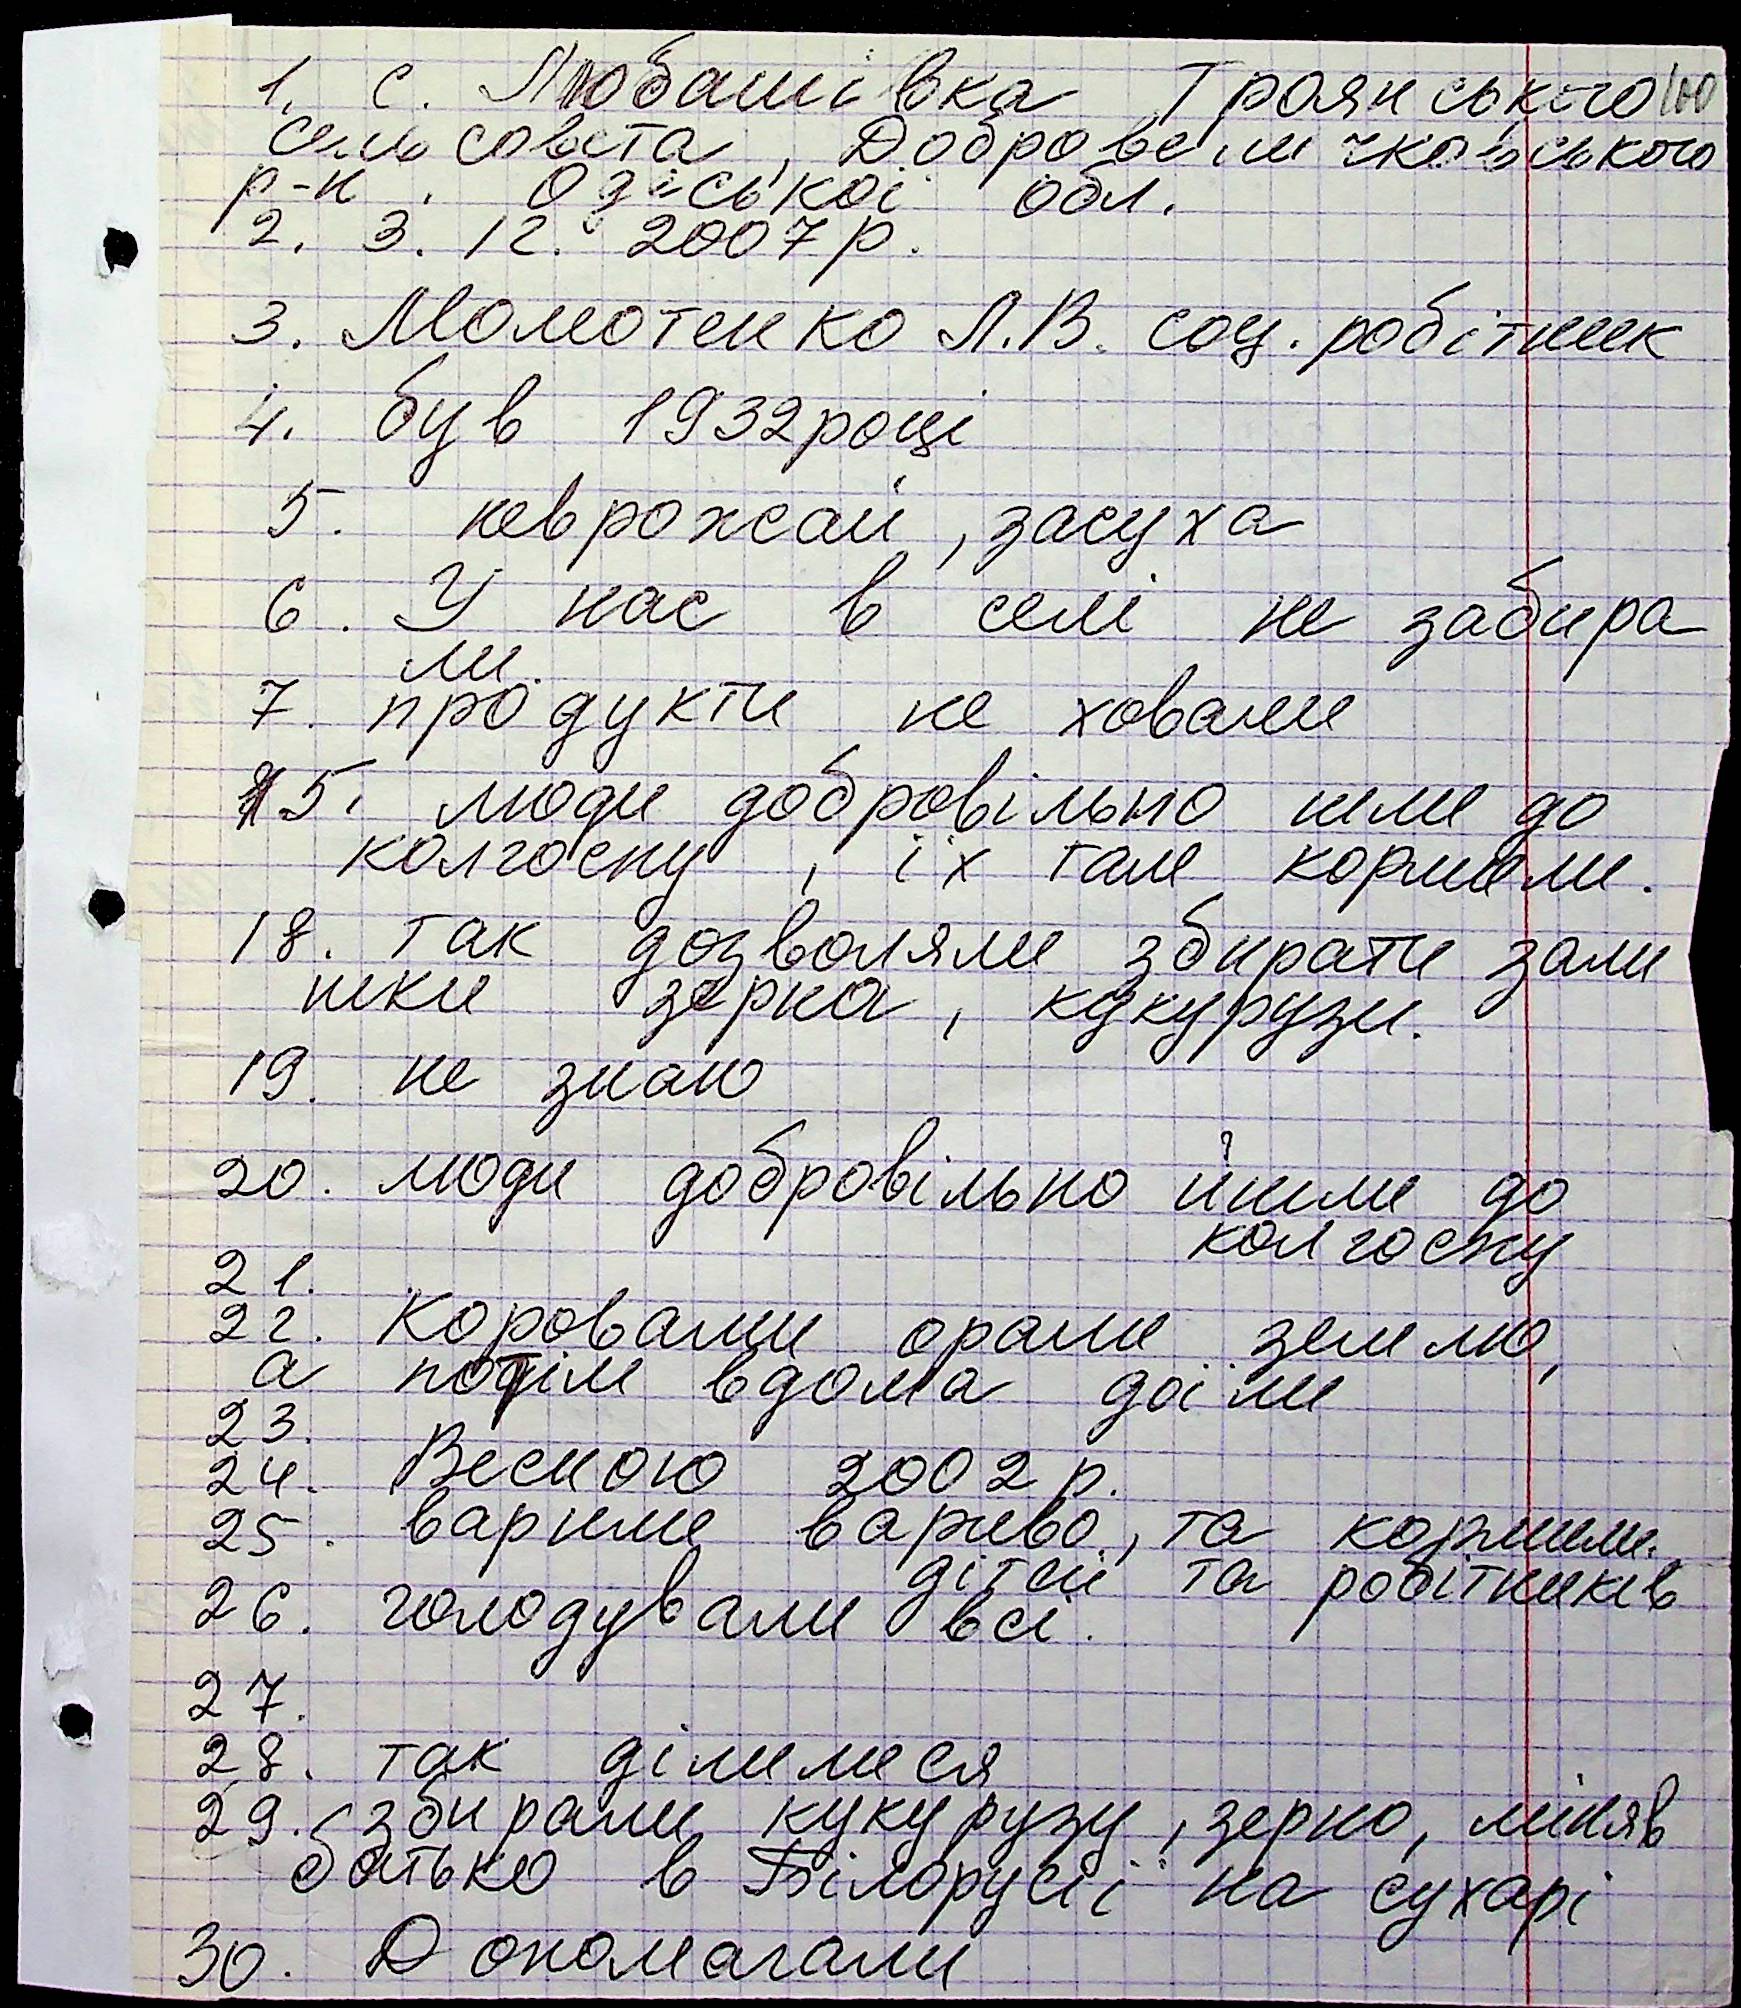 1. с. Любашівка Троянського 100
сельсовєта, Добровеличковського
р-н. Одеської обл.
2. 3. 12. 2007р.
3. Момотенко Л.В. соц. робітник
4. був 1932 році
5. неврожай, засуха
6. У нас в селі не забира
ли.
7. продукти не ховали
15. люди добровільно шли до
колгоспу, їх там кормили.
18. так дозволяли збирати зали
шки зерна, кукурузи.
19. не знаю
20. люди добровільно йшли до
колгоспу
21.
22. Коровами орали землю,
а потім вдома доїли
23.
24. Весною 2002 р.
25. варили варево, та кормили
дітей та робітників
26. голодували всі.
27.
28. так ділилися
29. збирали кукурузу, зерно, міняв
батько в Білорусії на сухарі
30. Допомагали